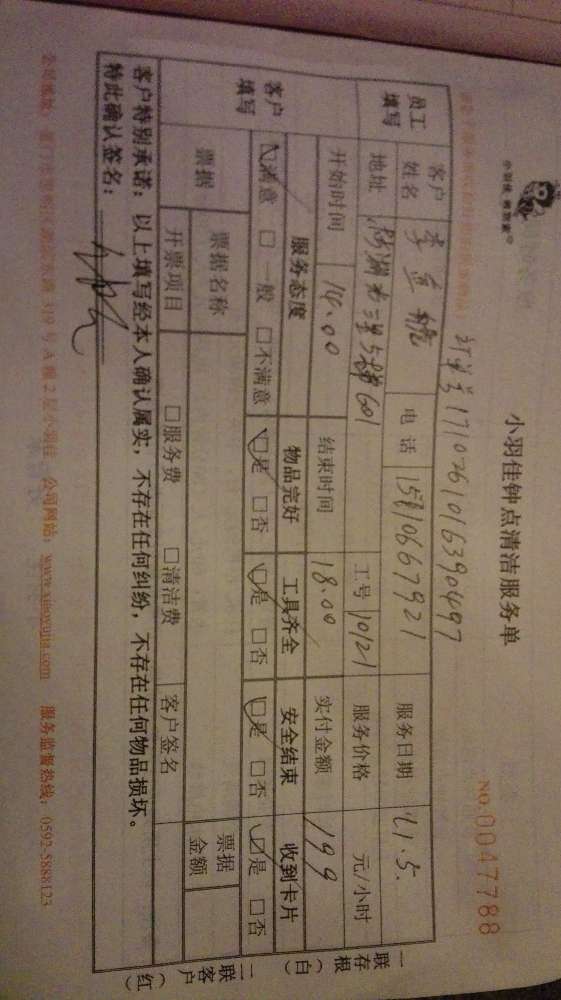 小羽佳钟点清洁服务单
NO.0047788
订单号1710261016390497
员工填写 客户姓名 电话 15810667921 服务日期 21.5.
地址 工号 10121 服务价格 元/小时
开始时间 14.00 结束时间 18.00 实付金额 199
客户填写 服务态度 物品完好 工具齐全 安全结束 收到卡片
☑满意 □一般 □不满意 ☑是 □否 ☑是 □否 ☑是 □否 ☑是 □否
票据 票据名称 票据金额
开票项目 □服务费 □清洁费 客户签名
客户特别承诺：以上填写经本人确认属实，不存在任何纠纷，不存在任何物品损坏。
特此确认签名：
一联存根（白） 二联客户（红）
公司网站：www.xiaoyujia.com 服务监督热线：0592-5888123